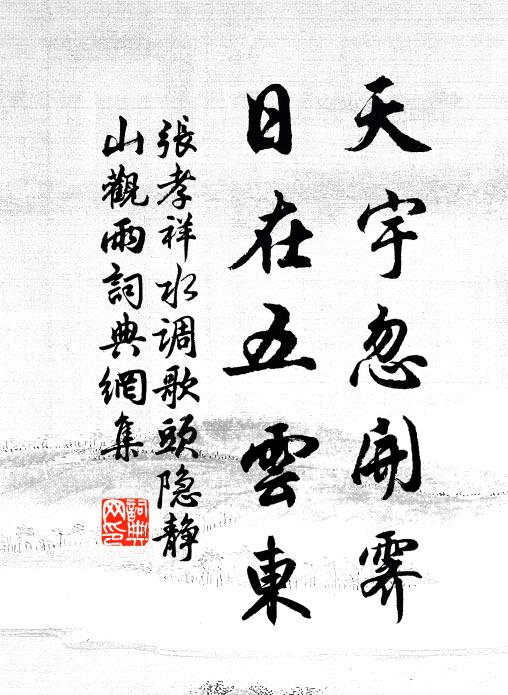 天宇忽開霽
日在五雲東
張孝祥水调歌頭隐静
山觀雨詞典網集
詞典网印